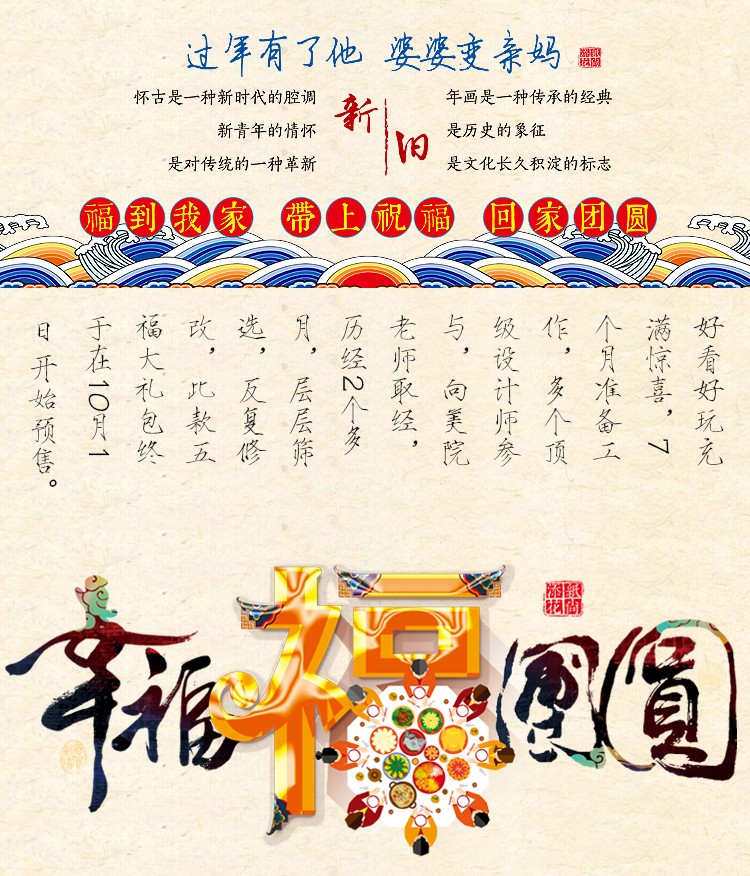 过年有了他 婆婆变亲妈
怀古是一种新时代的腔调
新青年的情怀
是对传统的一种革新
新
旧
年画是一种传承的经典
是历史的象征
是文化长久积淀的标志
福到我家 帶上祝福 回家团圆
好看好玩充
满惊喜，7
个月准备工
作，多个顶
级设计师参
与，向美院
老师取经，
历经2个多
月，层层筛
选，反复修
改，此款五
福大礼包终
于在10月1
日开始预售。
幸福
福
團圓